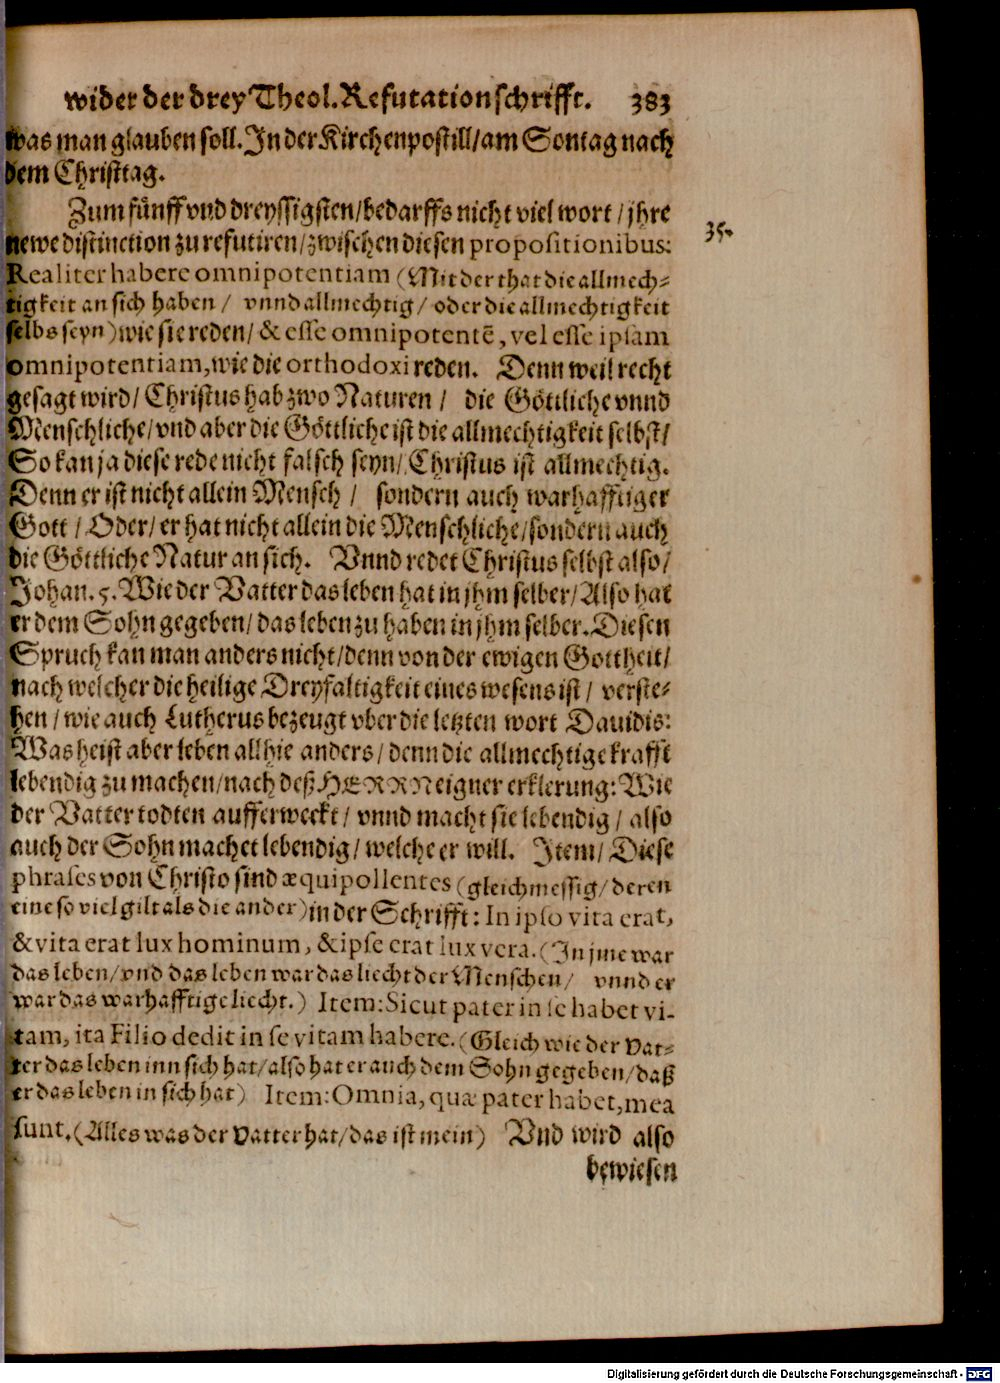 wider der drey Theol. Refutationschrifft. 383
was man glauben soll. In der Kirchenpostill/am Sontag nach
dem Christtag.
Zum fünff vnd dreyssigsten/bedarffs nicht viel wort/jhre
35.
newe distinction zu refutiren/zwischen diesen propositionibus:
Realiter habere omnipotentiam (Mit der that die allmech-
tigkeit an sich haben/ vnnd allmechtig/ oder die allmechtigkeit
selbs seyn) wie sie reden/ & esse omnipotentē, vel esse ipsam
omnipotentiam, wie die orthodoxi reden. Denn weil recht
gesagt wird/ Christus hab zwo Naturen/ die Göttliche vnnd
Menschliche/vnd aber die Göttliche ist die allmechtigkeit selbst/
So kan ja diese rede nicht falsch seyn/ Christus ist allmechtig.
Denn er ist nicht allein Mensch/ sondern auch warhafftiger
Gott/ Oder/ er hat nicht allein die Menschliche/sondern auch
die Göttliche Natur an sich. Vnnd redet Christus selbst also/
Johan. 5. Wie der Vatter das leben hat in jhm selber/Also hat
er dem Sohn gegeben/das leben zu haben in jhm selber. Diesen
Spruch kan man anders nicht/denn von der ewigen Gottheit/
nach welcher die heilige Dreyfaltigkeit eines wesens ist/ verste-
hen/wie auch Lutherus bezeugt vber die letzten wort Dauidis:
Was heist aber leben allhie anders/denn die allmechtige krafft
lebendig zu machen/nach deß HERRN eigner erklerung: Wie
der Vatter todten aufferweckt/ vnnd macht sie lebendig/ also
auch der Sohn machet lebendig/welche er will. Item/ Diese
phrases von Christo sind æquipollentes (gleichmessig/deren
eine so viel gilt als die ander) in der Schrifft: In ipso vita erat,
& vita erat lux hominum, & ipse erat lux vera. (In jme war
das leben/vnd das leben war das liecht der Menschen/ vnnd er
war das warhafftige liecht.) Item: Sicut pater in se habet vi-
tam, ita Filio dedit in se vitam habere. (Gleich wie der Vat-
ter das leben inn sich hat/also hat er auch dem Sohn gegeben/daß
er das leben in sich hat) Item: Omnia, quæ pater habet, mea
sunt. (Alles was der Vatter hat/das ist mein) Vnd wird also
bewiesen
Digitalisierung gefördert durch die Deutsche Forschungsgemeinschaft - DFG